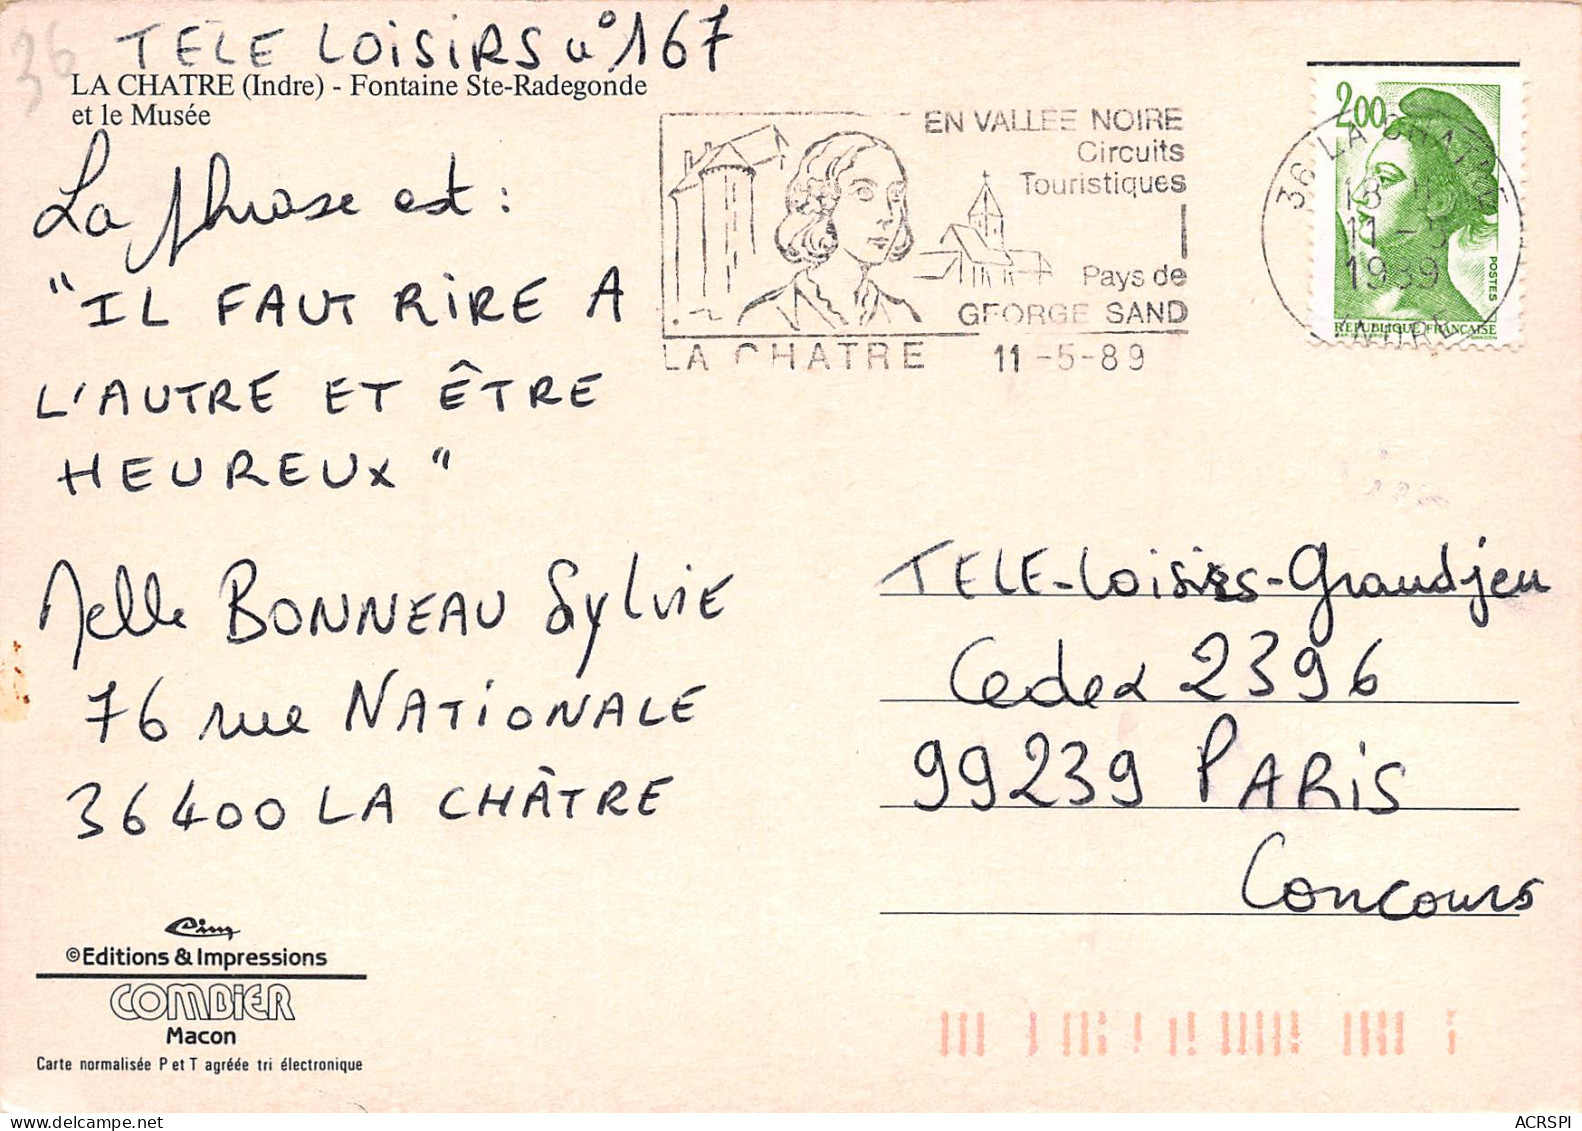 36
TELE LOISIRS n°167
LA CHATRE (Indre) - Fontaine Ste-Radegonde
et le Musée
La phrase est :
"IL FAUT RIRE A
L'AUTRE ET ÊTRE
HEUREUX"
Melle BONNEAU Sylvie
76 rue NATIONALE
36400 LA CHÂTRE
Cim
©Editions & Impressions
COMBIER
Macon
Carte normalisée P et T agréée tri électronique
EN VALLÉE NOIRE
Circuits
Touristiques
Pays de
GEORGE SAND
LA CHATRE 11-5-89
2,00
POSTES
REPUBLIQUE FRANÇAISE
36 LA CHATRE
18 H
11-5
1989
INDRE
TELE-Loisirs-Grandjeu
Cedex 2396
99239 PARIS
Concours
ACRSPI